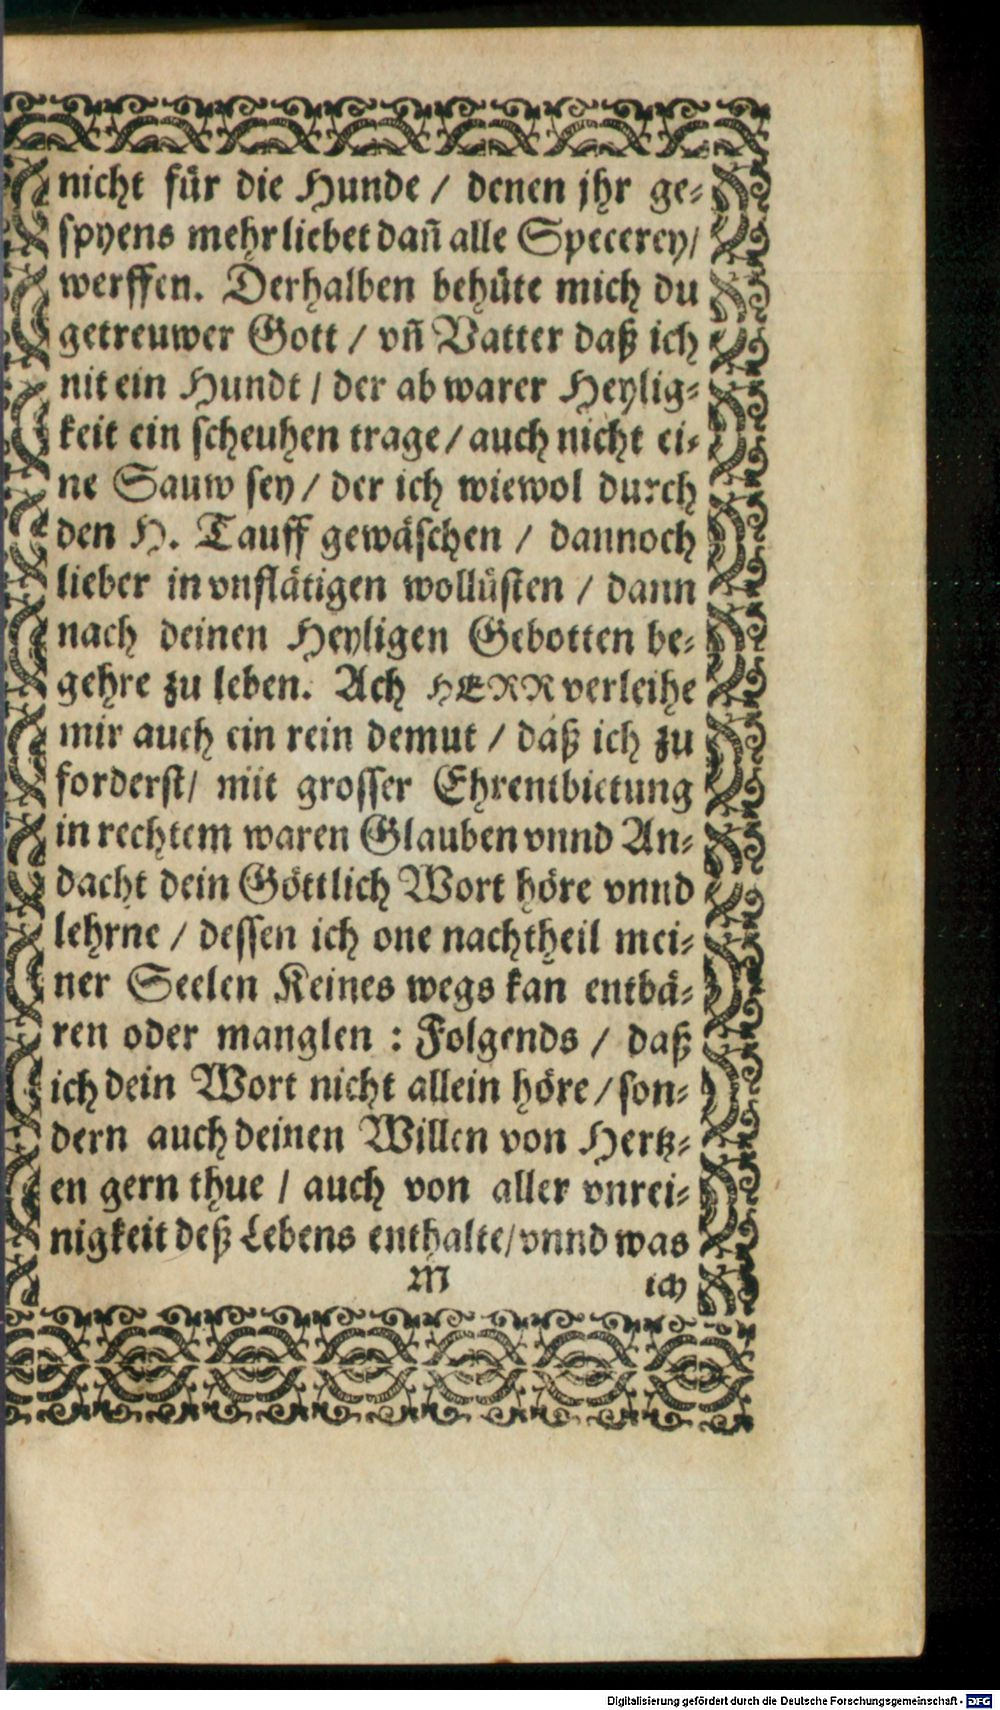 nicht für die Hunde / denen jhr ge-
spyens mehr liebet dañ alle Specerey/
werffen. Derhalben behüte mich du
getreuwer Gott / vñ Vatter daß ich
nit ein Hundt / der ab warer Heylig-
keit ein scheuhen trage / auch nicht ei-
ne Sauw sey / der ich wiewol durch
den H. Tauff gewäschen / dannoch
lieber in vnflätigen wollüsten / dann
nach deinen Heyligen Gebotten be-
gehre zu leben. Ach HERR verleihe
mir auch ein rein demut / daß ich zu
forderst/ mit grosser Ehrentbietung
in rechtem waren Glauben vnnd An-
dacht dein Göttlich Wort höre vnnd
lehrne / dessen ich one nachtheil mei-
ner Seelen Keines wegs kan entbä-
ren oder manglen : Folgends / daß
ich dein Wort nicht allein höre / son-
dern auch deinen Willen von Hertz-
en gern thue / auch von aller vnrei-
nigkeit deß Lebens enthalte/ vnnd was
M ich
Digitalisierung gefördert durch die Deutsche Forschungsgemeinschaft - DFG